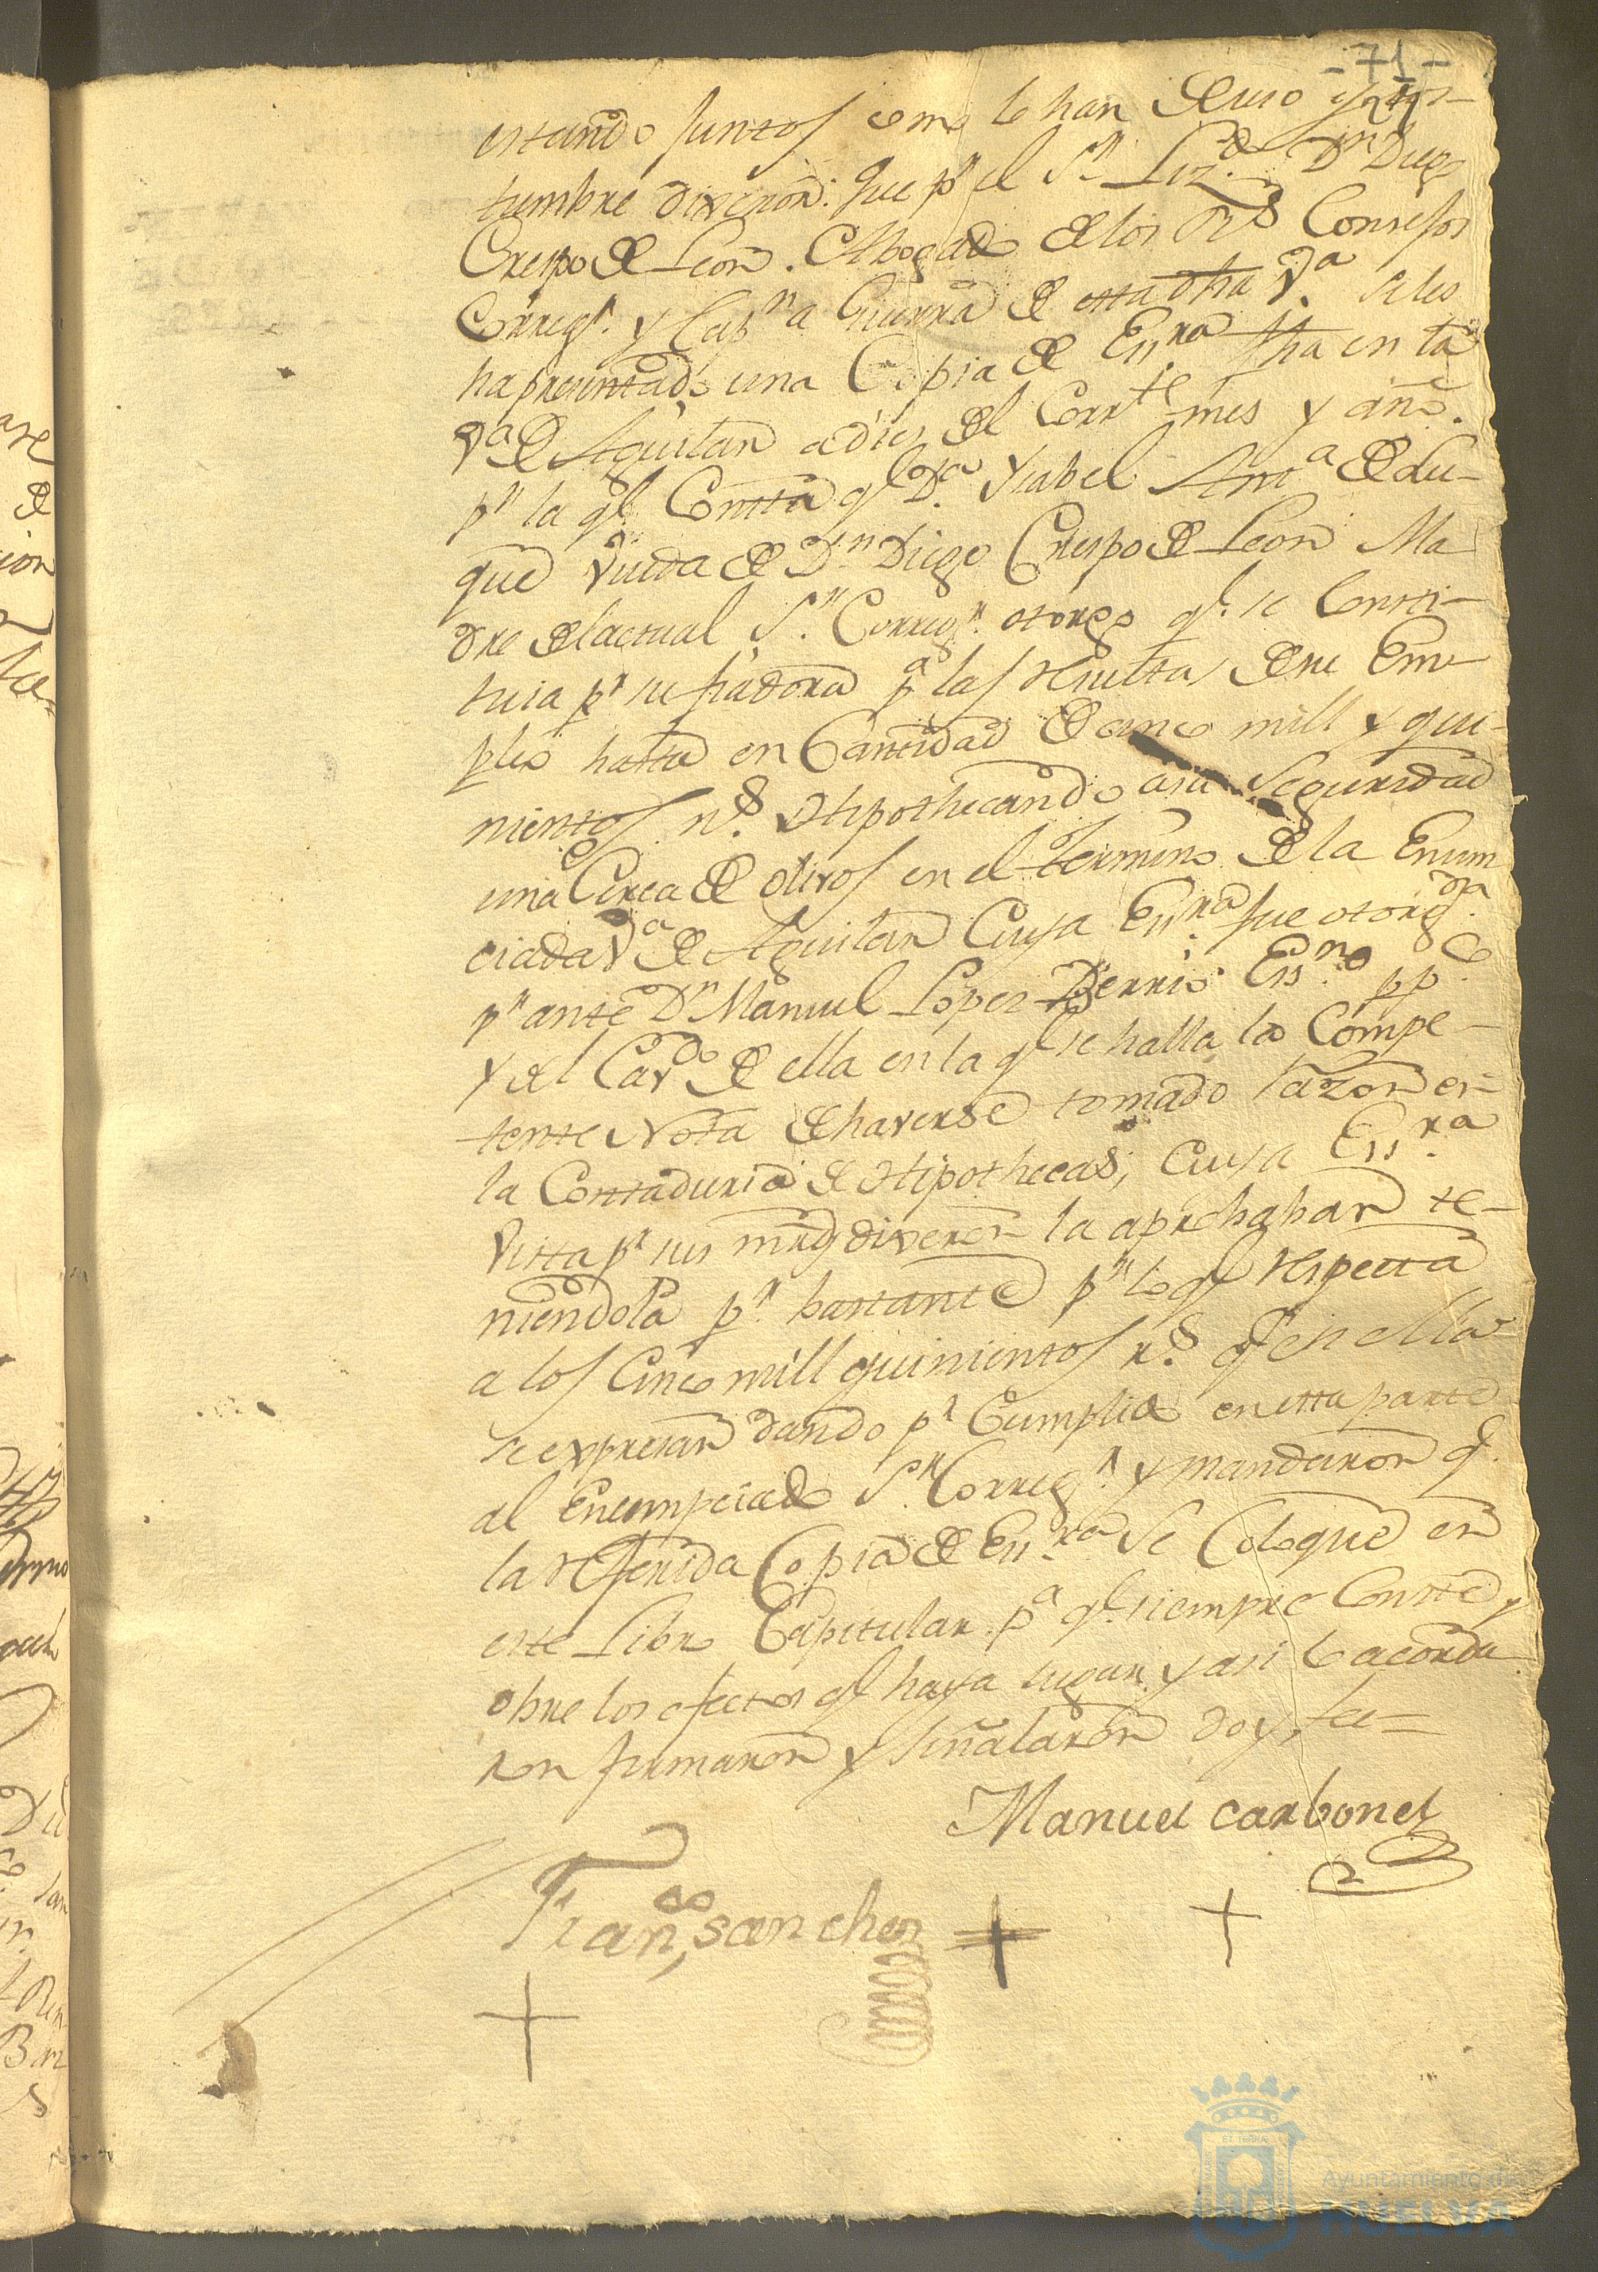 -71-
estando Juntos como lo han de uso y cos-
tumbre dixeron: Que pr el Sr Lizdo Dn Diego
Crespo de Leon Abogado de los Rs Consejos
Corregr y Capn a Guerra de esta dha Va se les
ha presentado una Copia de Essra fha en la
Va de Aguilar a diez del Corrte mes y año.
pr la ql Consta ql Da Ysabel Anta de Lu-
que Viuda de Dn Diego Crespo de Leon Ma
dre del actual Sr Corregr otorgo ql se Consti-
tuia pr su fiadora pa las resultas de su Em-
pleo hasta en Cantidad de cinco mill y qui-
nientos rs Hipothecando a su Seguridad
una Cerca de olivos en el termino de la Enun
ciada Va de Aguilar Cuya Essra fue otorgda
pr ante Dn Manuel Lopez Essno ppco
y del Cavdo de ella en la ql se halla la Compe-
tente Nota de haverse tomado razon en
la Contaduria de Hipothecas; Cuya Essra
Vista pr sus mrds dixeron la aprobaban te-
niendola pr bastante pr lo ql respecta
a los Cinco mill quinientos rs ql en ella
se expresan dando pr Cumplido en esta parte
al Enumpciado Sr Corregr y mandaron ql
la referida Copia de Essra se Coloque en
este Libro Capitular pa ql siempre Conste y
obre los efectos ql haya lugar y asi lo acorda
ron firmaron y Señalaron doy fee =
Manuel carbonel
Franco sanchez
Ayuntamiento de
HUELVA